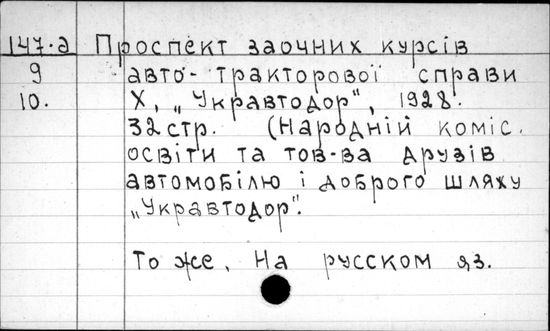 147-д Проспект заочних курсів
9 авто-тракторової справи
10. Х, „Укравтодор", 1928.
32 стр. (Народній коміс.
освіти та тов-ва друзів
автомобілю і доброго шляху
„Укравтодор".
То же, На русском яз.